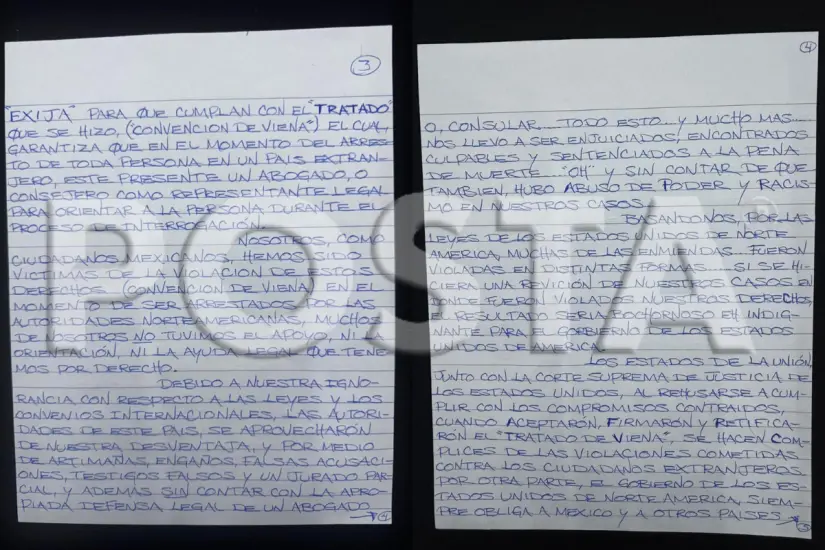 3
"EXIJA" PARA QUE CUMPLAN CON EL "TRATADO"
QUE SE HIZO, ("CONVENCION DE VIENA") EL CUAL,
GARANTIZA QUE EN EL MOMENTO DEL ARRES-
TO DE TODA PERSONA EN UN PAIS EXTRAN-
JERO, ESTE PRESENTE UN ABOGADO, O
CONSEJERO COMO REPRESENTANTE LEGAL
PARA ORIENTAR A LA PERSONA DURANTE EL
PROCESO DE INTERROGACIÓN.
NOSOTROS, COMO
CIUDADANOS MEXICANOS, HEMOS SIDO
VICTIMAS DE LA VIOLACION DE ESTOS
DERECHOS (CONVENCION DE VIENA) EN EL
MOMENTO DE SER ARRESTADOS POR LAS
AUTORIDADES NORTEAMERICANAS, MUCHOS
DE NOSOTROS NO TUVIMOS EL APOYO, NI LA
ORIENTACIÓN, NI LA AYUDA LEGAL QUE TENE-
MOS POR DERECHO.
DEBIDO A NUESTRA IGNO-
RANCIA CON RESPECTO A LAS LEYES Y LOS
CONVENIOS INTERNACIONALES, LAS AUTORI-
DADES DE ESTE PAIS, SE APROVECHARÓN
DE NUESTRA DESVENTAJA, Y POR MEDIO
DE ARTIMAÑAS, ENGAÑOS, FALSAS ACUSACI-
ONES, TESTIGOS FALSOS Y UN JURADO PAR-
CIAL, Y ADEMAS SIN CONTAR CON LA APRO-
PIADA DEFENSA LEGAL DE UN ABOGADO
4
4
O, CONSULAR... TODO ESTO... Y MUCHO MAS...
NOS LLEVO A SER ENJUICIADOS, ENCONTRADOS
CULPABLES Y SENTENCIADOS A LA PENA
DE MUERTE. "OH" Y SIN CONTAR DE QUE
TAMBIEN, HUBO ABUSO DE PODER Y RACIS-
MO EN NUESTROS CASOS.
BASANDONOS, POR LAS
LEYES DE LOS ESTADOS UNIDOS DE NORTE
AMERICA, MUCHAS DE LAS ENMIENDAS FUERON
VIOLADAS EN DISTINTAS FORMAS... SI SE HI-
CIERA UNA REVICIÓN DE NUESTROS CASOS EN
DONDE FUERON VIOLADOS NUESTROS DERECHOS,
EL RESULTADO SERIA BOCHORNOSO EH INDIG-
NANTE PARA EL GOBIERNO DE LOS ESTADOS
UNIDOS DE AMERICA.
LOS ESTADOS DE LA UNIÓN,
JUNTO CON LA CORTE SUPREMA DE JUSTICIA DE
LOS ESTADOS UNIDOS, AL REHUSARSE A CUM-
PLIR CON LOS COMPROMISOS CONTRAIDOS,
CUANDO ACEPTARÓN, FIRMARÓN Y RETIFICA-
RÓN EL "TRATADO DE VIENA", SE HACEN COM-
PLICES DE LAS VIOLACIONES COMETIDAS
CONTRA LOS CIUDADANOS EXTRANJEROS.
POR OTRA PARTE, EL GOBIERNO DE LOS ES-
TADOS UNIDOS DE NORTE AMERICA, SIEM-
PRE OBLIGA A MEXICO Y A OTROS PAISES
5
POSTA